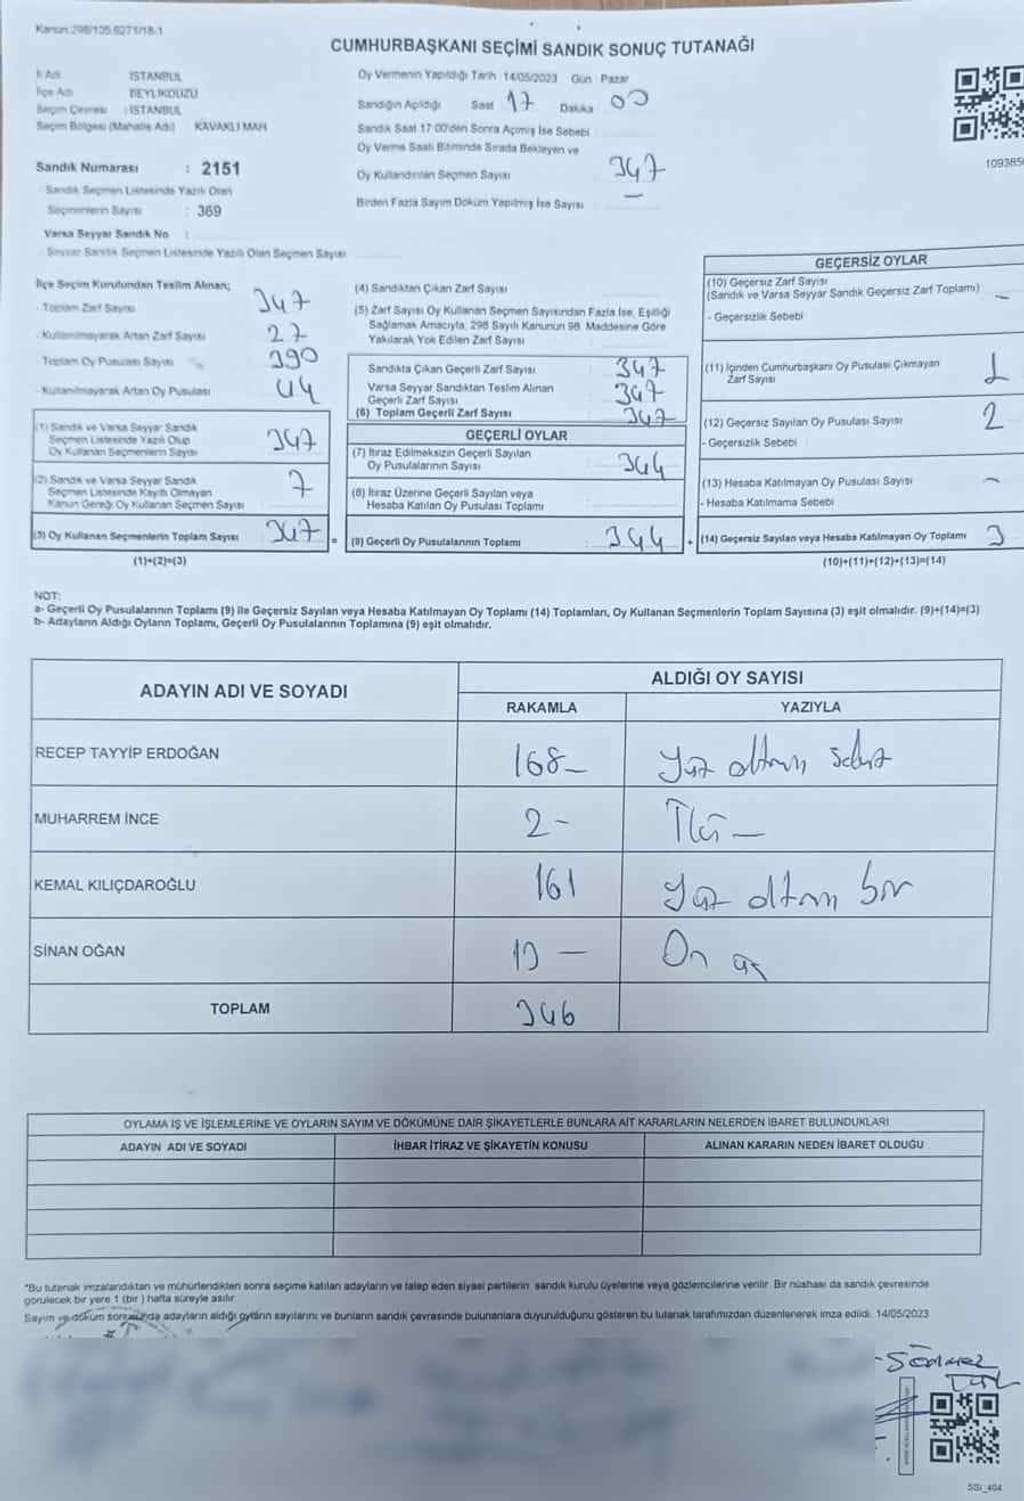 Kanun:298/105.6271/18-1
CUMHURBAŞKANI SEÇİMİ SANDIK SONUÇ TUTANAĞI
İl Adı : İSTANBUL
İlçe Adı : BEYLİKDÜZÜ
Seçim Çevresi : İSTANBUL
Seçim Bölgesi (Mahalle Adı) KAVAKLI MAH
Sandık Numarası : 2151
Sandık Seçmen Listesinde Yazılı Olan
Seçmenlerin Sayısı : 369
Varsa Seyyar Sandık No :
Seyyar Sandık Seçmen Listesinde Yazılı Olan Seçmen Sayısı
Oy Vermenin Yapıldığı Tarih : 14/05/2023 Gün : Pazar
Sandığın Açıldığı Saat 17 Dakika 00
Sandık Saat 17:00'den Sonra Açılmış İse Sebebi
Oy Verme Saati Bitiminde Sırada Bekleyen ve
Oy Kullandırılan Seçmen Sayısı 347
Birden Fazla Sayım Döküm Yapılmış İse Sayısı —
109385
İlçe Seçim Kurulundan Teslim Alınan;
- Toplam Zarf Sayısı 347
- Kullanılmayarak Artan Zarf Sayısı 27
- Toplam Oy Pusulası Sayısı 390
- Kullanılmayarak Artan Oy Pusulası 44
(1) Sandık ve Varsa Seyyar Sandık
Seçmen Listesinde Yazılı Olup
Oy Kullanan Seçmenlerin Sayısı 347
(2) Sandık ve Varsa Seyyar Sandık
Seçmen Listesinde Kayıtlı Olmayan
Kanun Gereği Oy Kullanan Seçmen Sayısı 7
(3) Oy Kullanan Seçmenlerin Toplam Sayısı 347 =
(1)+(2)=(3)
(4) Sandıktan Çıkan Zarf Sayısı
(5) Zarf Sayısı Oy Kullanan Seçmen Sayısından Fazla İse, Eşitliği
Sağlamak Amacıyla, 298 Sayılı Kanunun 98. Maddesine Göre
Yakılarak Yok Edilen Zarf Sayısı
Sandıkta Çıkan Geçerli Zarf Sayısı 347
Varsa Seyyar Sandıktan Teslim Alınan
Geçerli Zarf Sayısı 347
(6) Toplam Geçerli Zarf Sayısı 347
GEÇERLİ OYLAR
(7) İtiraz Edilmeksizin Geçerli Sayılan
Oy Pusulalarının Sayısı 344
(8) İtiraz Üzerine Geçerli Sayılan veya
Hesaba Katılan Oy Pusulası Toplamı
(9) Geçerli Oy Pusulalarının Toplamı 344 +
GEÇERSİZ OYLAR
(10) Geçersiz Zarf Sayısı
(Sandık ve Varsa Seyyar Sandık Geçersiz Zarf Toplamı) —
- Geçersizlik Sebebi
(11) İçinden Cumhurbaşkanı Oy Pusulası Çıkmayan
Zarf Sayısı 1
(12) Geçersiz Sayılan Oy Pusulası Sayısı 2
- Geçersizlik Sebebi
(13) Hesaba Katılmayan Oy Pusulası Sayısı —
- Hesaba Katılmama Sebebi
(14) Geçersiz Sayılan veya Hesaba Katılmayan Oy Toplamı 3
(10)+(11)+(12)+(13)=(14)
NOT:
a- Geçerli Oy Pusulalarının Toplamı (9) ile Geçersiz Sayılan veya Hesaba Katılmayan Oy Toplamı (14) Toplamları, Oy Kullanan Seçmenlerin Toplam Sayısına (3) eşit olmalıdır. (9)+(14)=(3)
b- Adayların Aldığı Oyların Toplamı, Geçerli Oy Pusulalarının Toplamına (9) eşit olmalıdır.
ADAYIN ADI VE SOYADI
ALDIĞI OY SAYISI
RAKAMLA YAZIYLA
RECEP TAYYİP ERDOĞAN 168— Yüz altmış sekiz
MUHARREM İNCE 2— İki —
KEMAL KILIÇDAROĞLU 161 Yüz altmış bir
SİNAN OĞAN 13 — On üç
TOPLAM 346
OYLAMA İŞ VE İŞLEMLERİNE VE OYLARIN SAYIM VE DÖKÜMÜNE DAİR ŞİKAYETLERLE BUNLARA AİT KARARLARIN NELERDEN İBARET BULUNDUKLARI
ADAYIN ADI VE SOYADI İHBAR İTİRAZ VE ŞİKAYETİN KONUSU ALINAN KARARIN NEDEN İBARET OLDUĞU
*Bu tutanak imzalandıktan ve mühürlendikten sonra seçime katılan adayların ve talep eden siyasi partilerin sandık kurulu üyelerine veya gözlemcilerine verilir. Bir nüshası da sandık çevresinde
görülecek bir yere 1 (bir ) hafta süreyle asılır.
Sayım ve döküm sonrasında adayların aldığı oyların sayılarını ve bunların sandık çevresinde bulunanlara duyurulduğunu gösteren bu tutanak tarafımızdan düzenlenerek imza edildi. 14/05/2023
Sönmez
SSİ_404